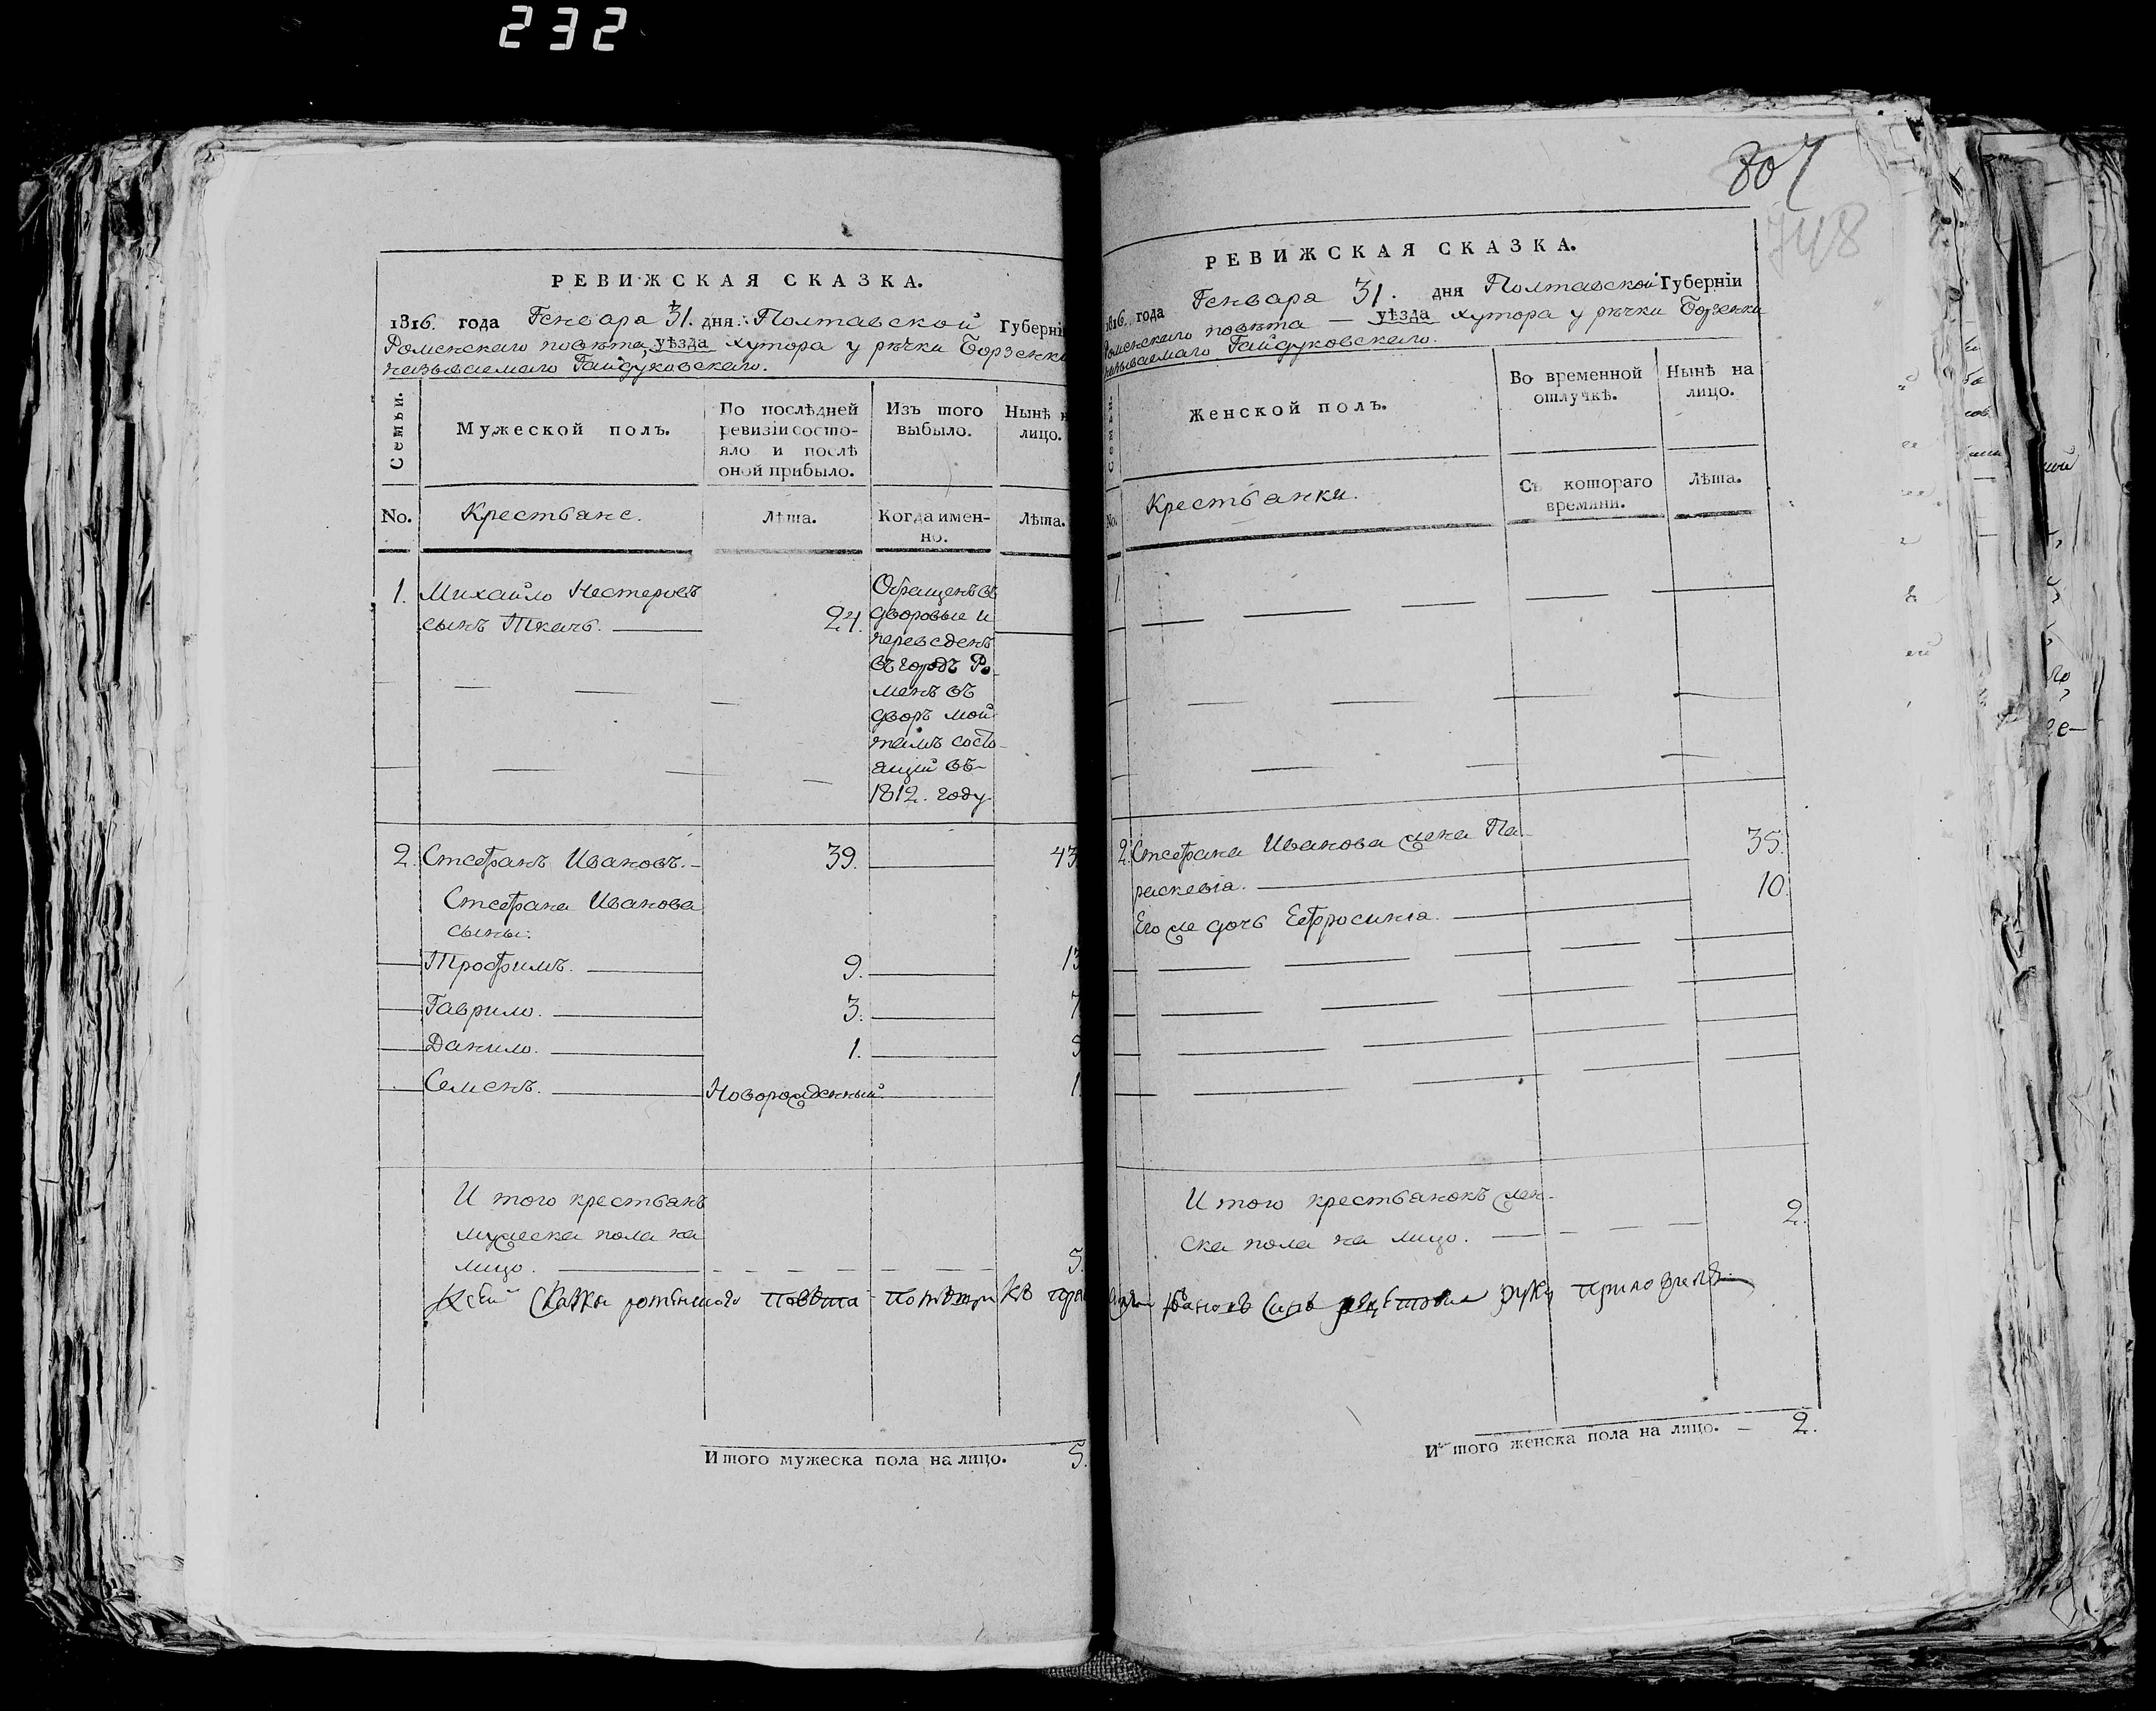 232
РЕВИЖСКАЯ СКАЗКА.
1816. года Генваря 31. дня. Полтавской Губерні
Роменскаго повѣта, уѣзда хутора у рѣчки Борзенки
называемаго Гайдуковскаго.
Семьи.
Мужеской полъ.
По послѣдней
ревизіи состо-
яло и послѣ
оной прибыло.
Изъ того
выбыло.
Нынѣ н
лицо.
No.
Крестьяне.
Лѣта.
Когда имен-
но.
Лѣта.
1. Михайло Нестеровъ
сынъ Ткачь. 24.
Обращенъ въ
дворовые и
переведенъ
въ городъ Ро-
менъ въ
дворъ мой
тамъ состо-
ящій въ
1812. году
2. Стефанъ Ивановъ. 39. 43
Стефана Иванова
сыны:
Трофимъ. 9. 13
Гаврило. 3. 7
Данило. 1. 5
Семенъ. Новорожденный. 1
И того крестьянъ
мужеска пола на
лицо. 5.
К сей сказки повета
Итого мужеска пола на лицо. 5.
807
748
РЕВИЖСКАЯ СКАЗКА.
1816. года Генваря 31. дня Полтавской Губерніи
Роменскаго повѣта — уѣзда хутора у рѣчки Борзенки
называемаго Гайдуковскаго.
Семьи.
Женской полъ.
Во временной
отлучкѣ.
Нынѣ на
лицо.
No.
Крестьянки.
Съ котораго
времяни.
Лѣта.
1.
2. Стефана Иванова жена Па-
раскевія. 35.
Его же дочь Ефросинія. 10.
И того крестьянокъ жен-
ска пола на лицо. 2.
сынъ руку приложилъ
И того женска пола на лицо. — 2.